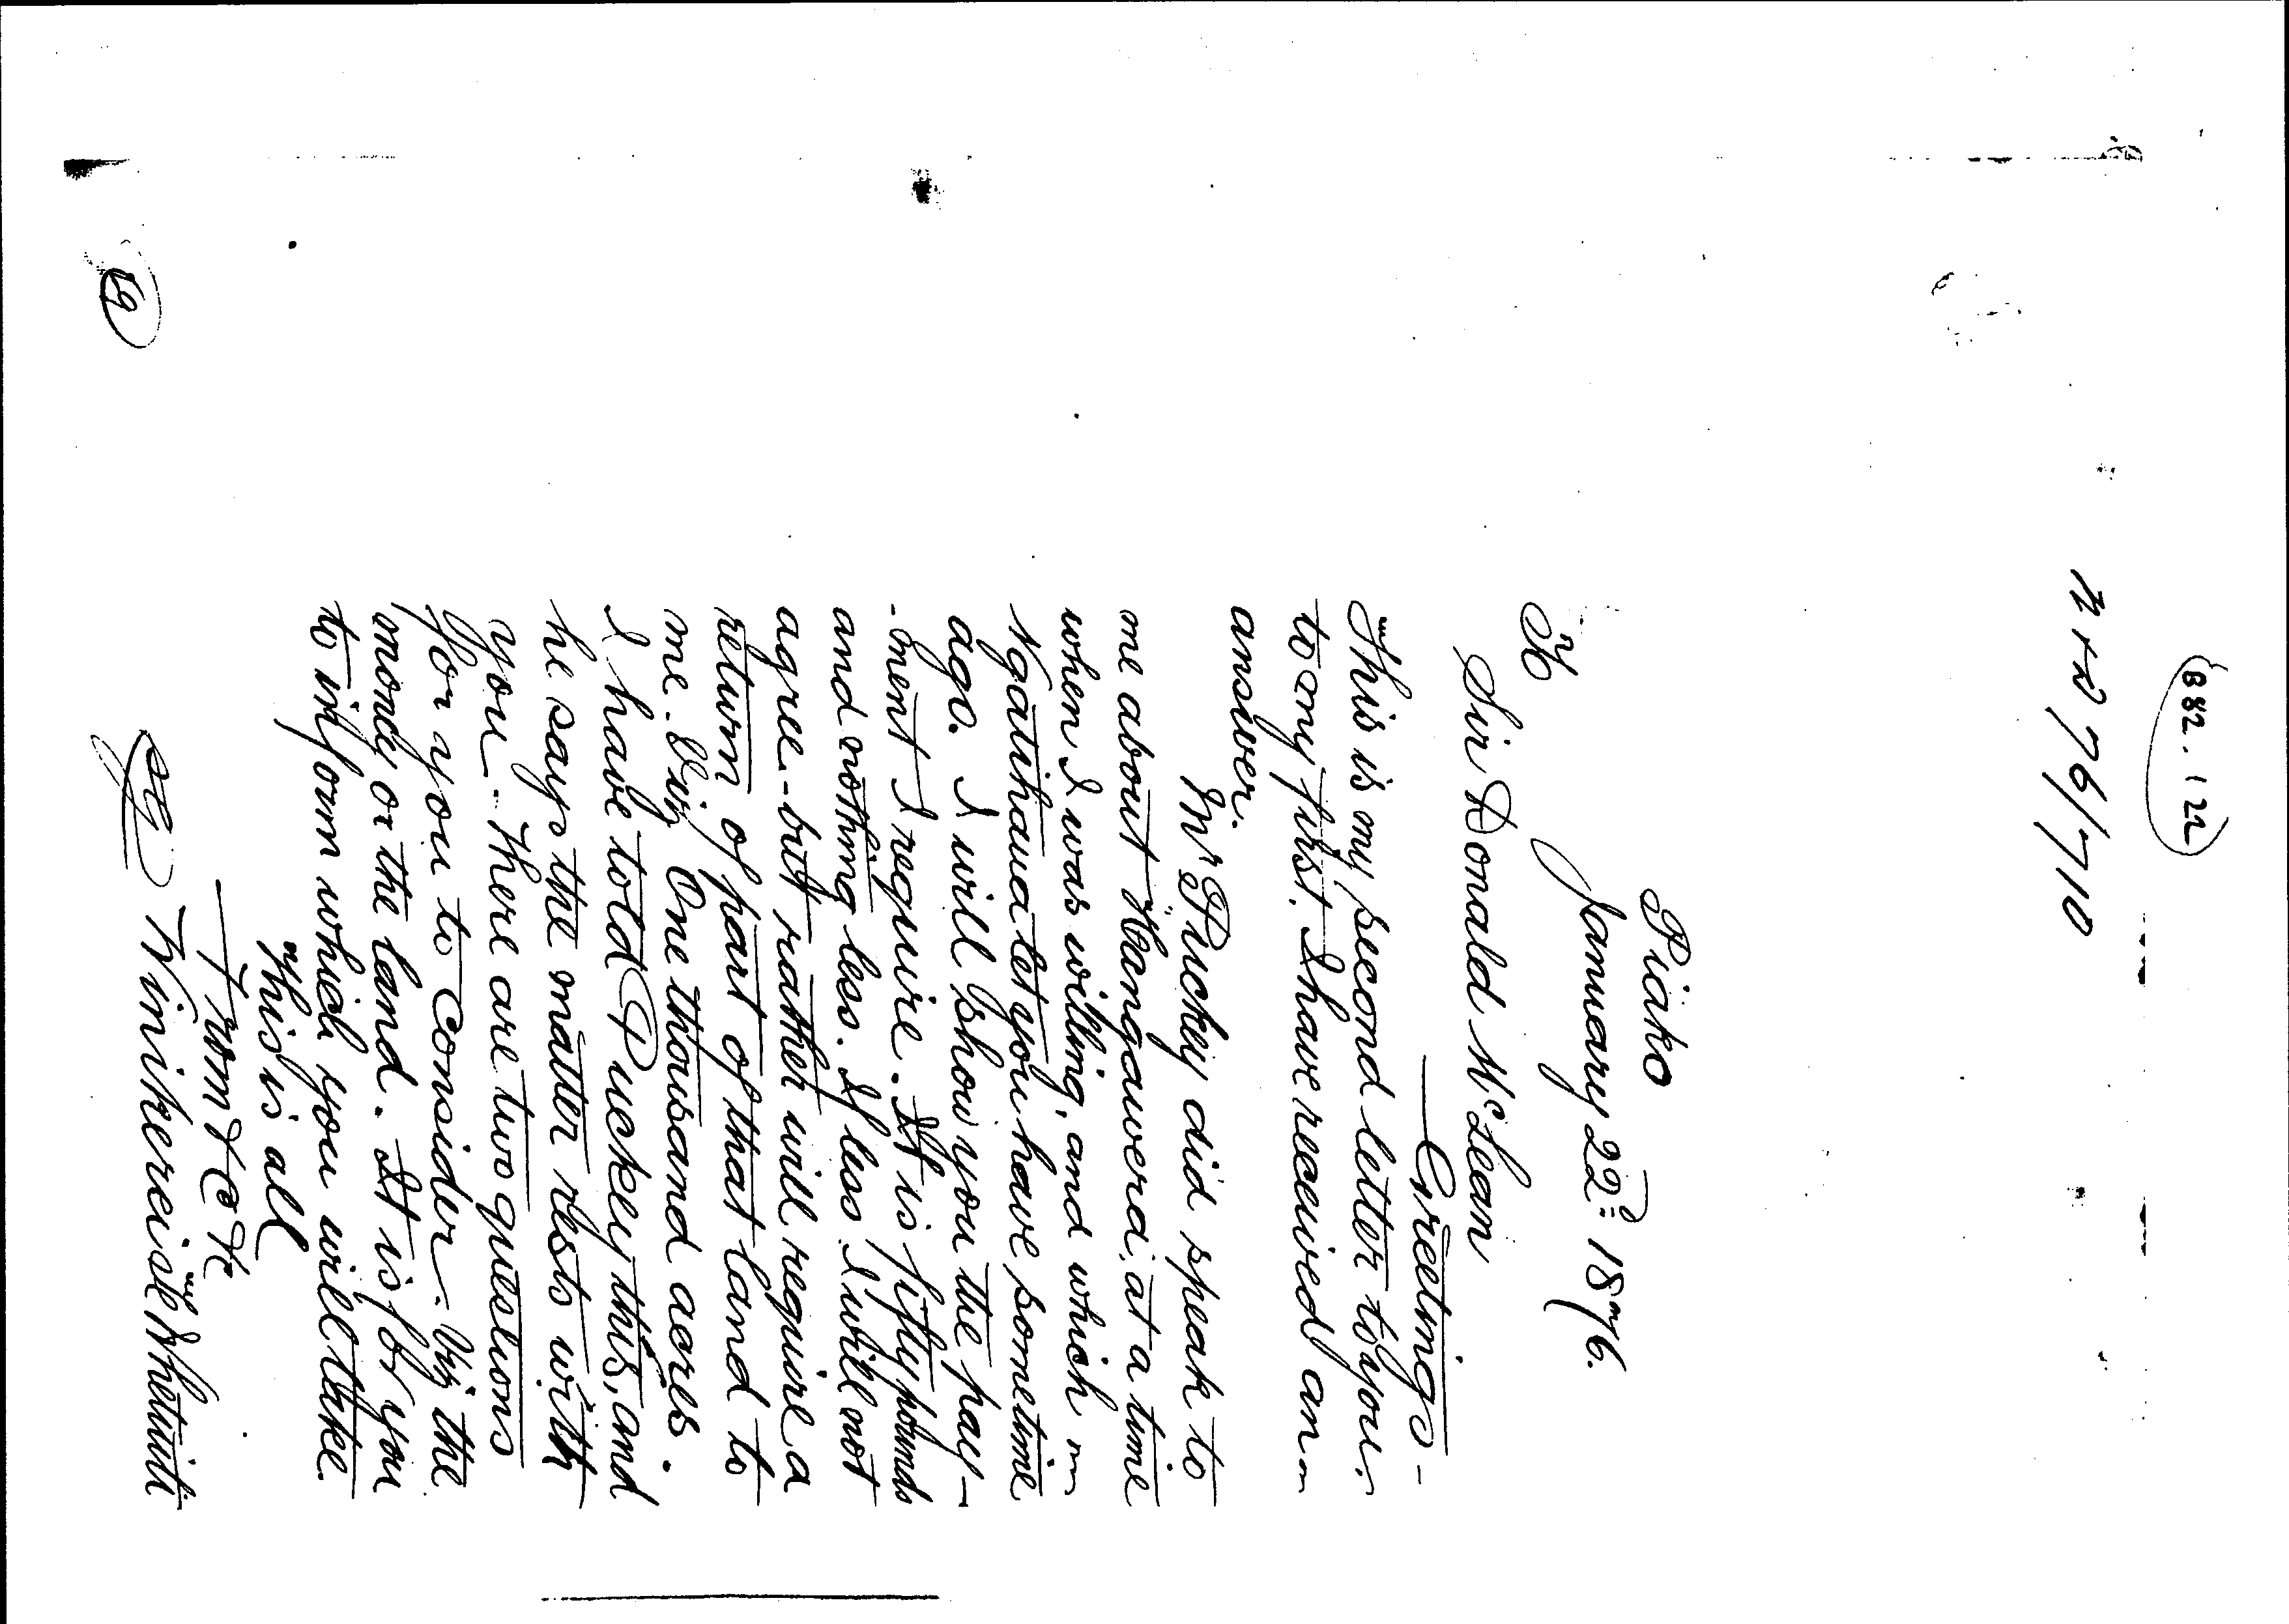 (882.122
N & D 76/710
Piako
January 22nd 1876.
To
Sir Donald McLean
Greetings-
This is my second letter to you.
to my first. I have received an
answer.
Mr Puckey did speak to
me about Hangawera, at a time
when I was willing, and which
Ngatihaua let you have some time
ago. I will show you the pay-
-ment I require. It is fifty pounds
and nothing less. If less I will not
agree - but rather will require a
return of part of that land to
me. Viz One thousand acres.
I have told Puckey this, and
he says the matter rests with
you. There are two questions
for you to consider - Viz the
money or the land. It is for you
to inform which you will take.
This is all
From